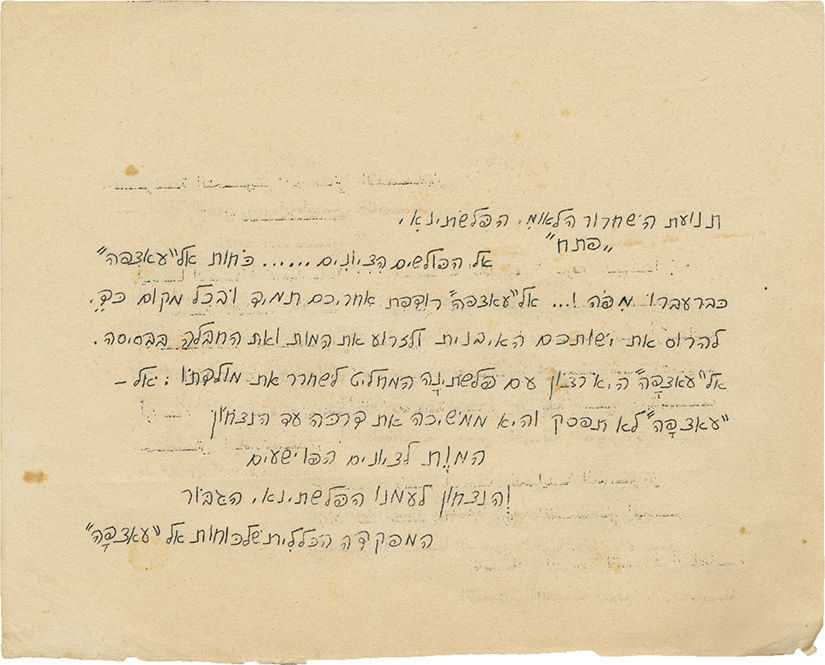 תנועת השחרור הלאומי הפלשתינאי,
„פתח"
אל הפולשים הציונים...... כחות אל "עאצפה"
כבר עברו מפה !... אל "עאצפה" רודפת אחריכם תמיד ובכל מקום כדי.
להרוס את ישותכם האויבנית ולזרוע את המות ואת החבלה בבסיסה.
אל "עאצפה" היא רצון עם פלשתינה המחליט לשחרר את מולדתו : אל –
"עאצפה" לא תפסק והיא ממשיכה את דרכה עד הנצחון
המות לציונים הפושעים
והנצחון לעמנו הפלשתינאי הגבור
המפקדה הכללית שלכוחות אל "עאצפה"